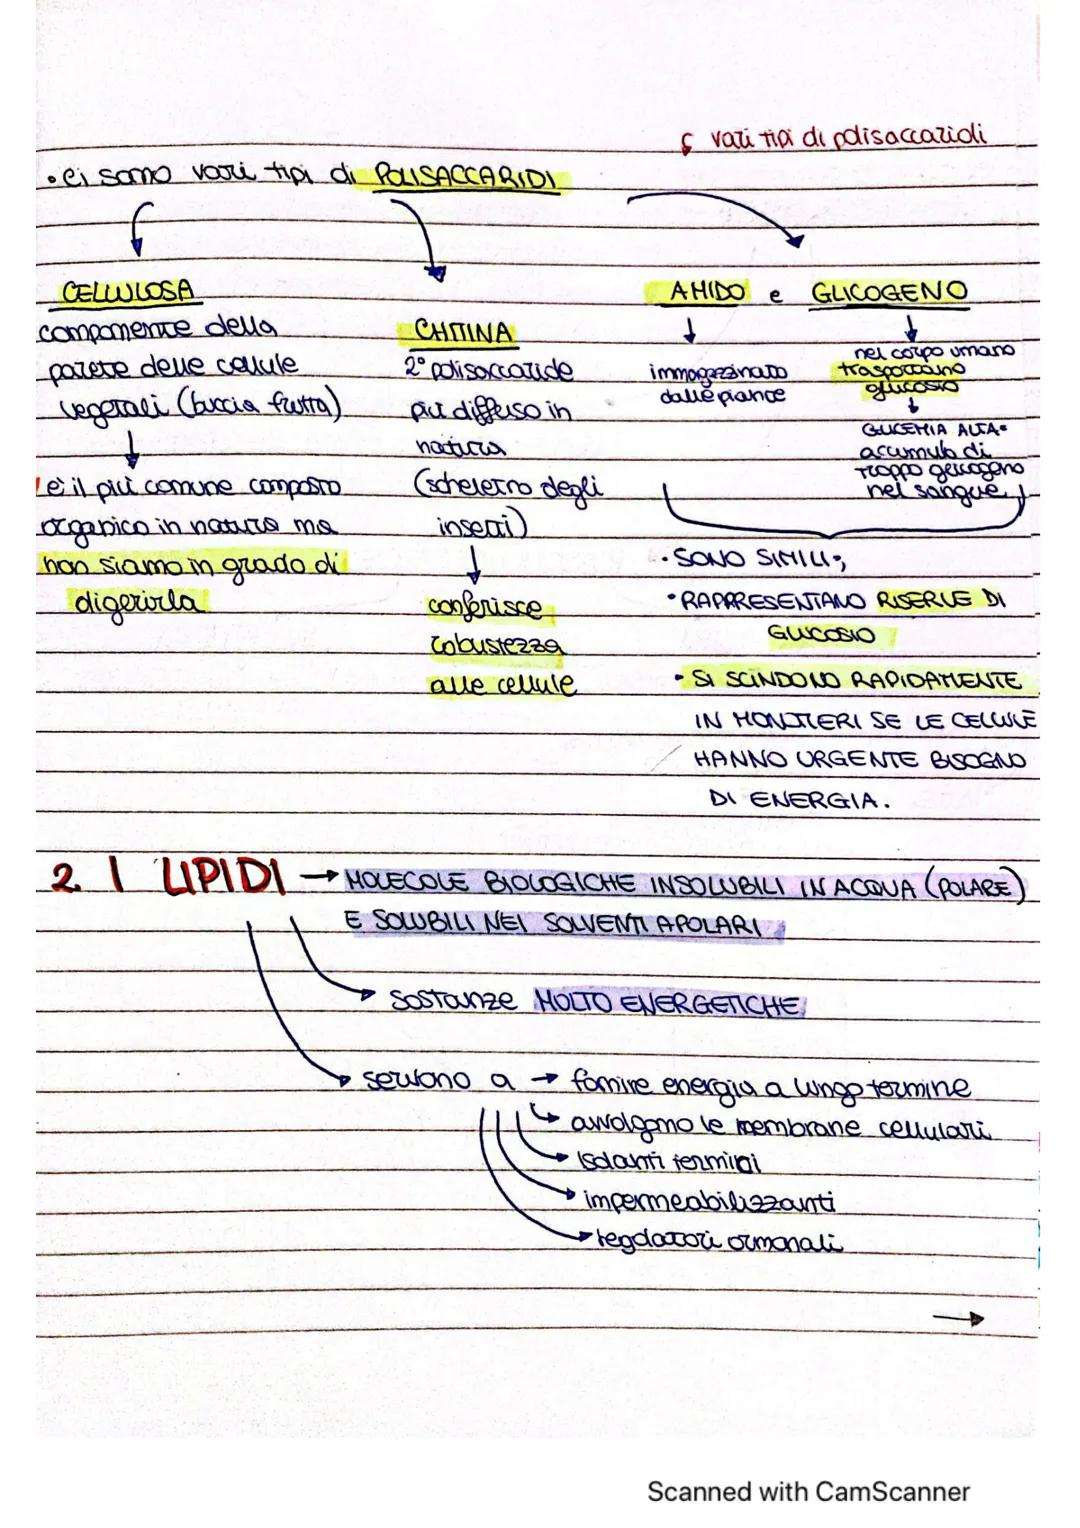 vari tipi di polisaccaridi
• ci sono vari tipi di POLISACCARIDI
CELLULOSA
componente della
parete delle cellule
vegetali (buccia frutta)
è il più comune composto
organico in natura ma
non siamo in grado di
digerirla
CHITINA
2° polisaccaride
più diffuso in
natura
(scheletro degli
insetti)
conferisce
robustezza
alle cellule
AMIDO e GLICOGENO
immagazzinato
dalle piante
nel corpo umano
trasportano
glucosio
GLICEMIA ALTA=
accumulo di
troppo glicogeno
nel sangue
• SONO SIMILI;
• RAPPRESENTANO RISERVE DI
GLUCOSIO
• SI SCINDONO RAPIDAMENTE
IN MONOMERI SE LE CELLULE
HANNO URGENTE BISOGNO
DI ENERGIA.
2. I LIPIDI → MOLECOLE BIOLOGICHE INSOLUBILI IN ACQUA (POLARE)
E SOLUBILI NEI SOLVENTI APOLARI
sostanze MOLTO ENERGETICHE
servono a → fornire energia a lungo termine
avvolgono le membrane cellulari
isolanti termici
impermeabilizzanti
regolatori ormonali
→
Scanned with CamScanner